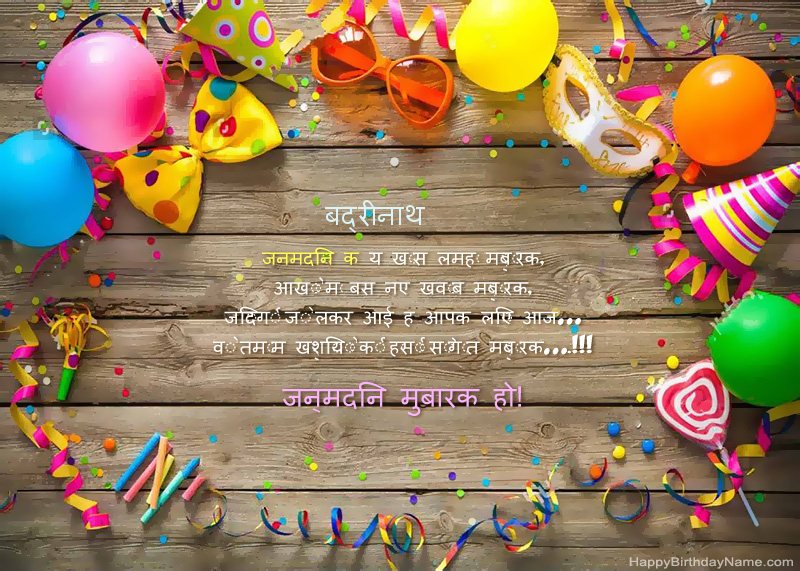 बद्रीनाथ
जनमदिन क य खास लमहा मबारक,
आखों में बसे नए खवाब मबारक,
जिंदगी जो लेकर आई ह आपके लिए आज...
वो तमाम खुशियों की हसीं सौगात मबारक...!!!
जन्मदिन मुबारक हो!
HappyBirthdayName.com